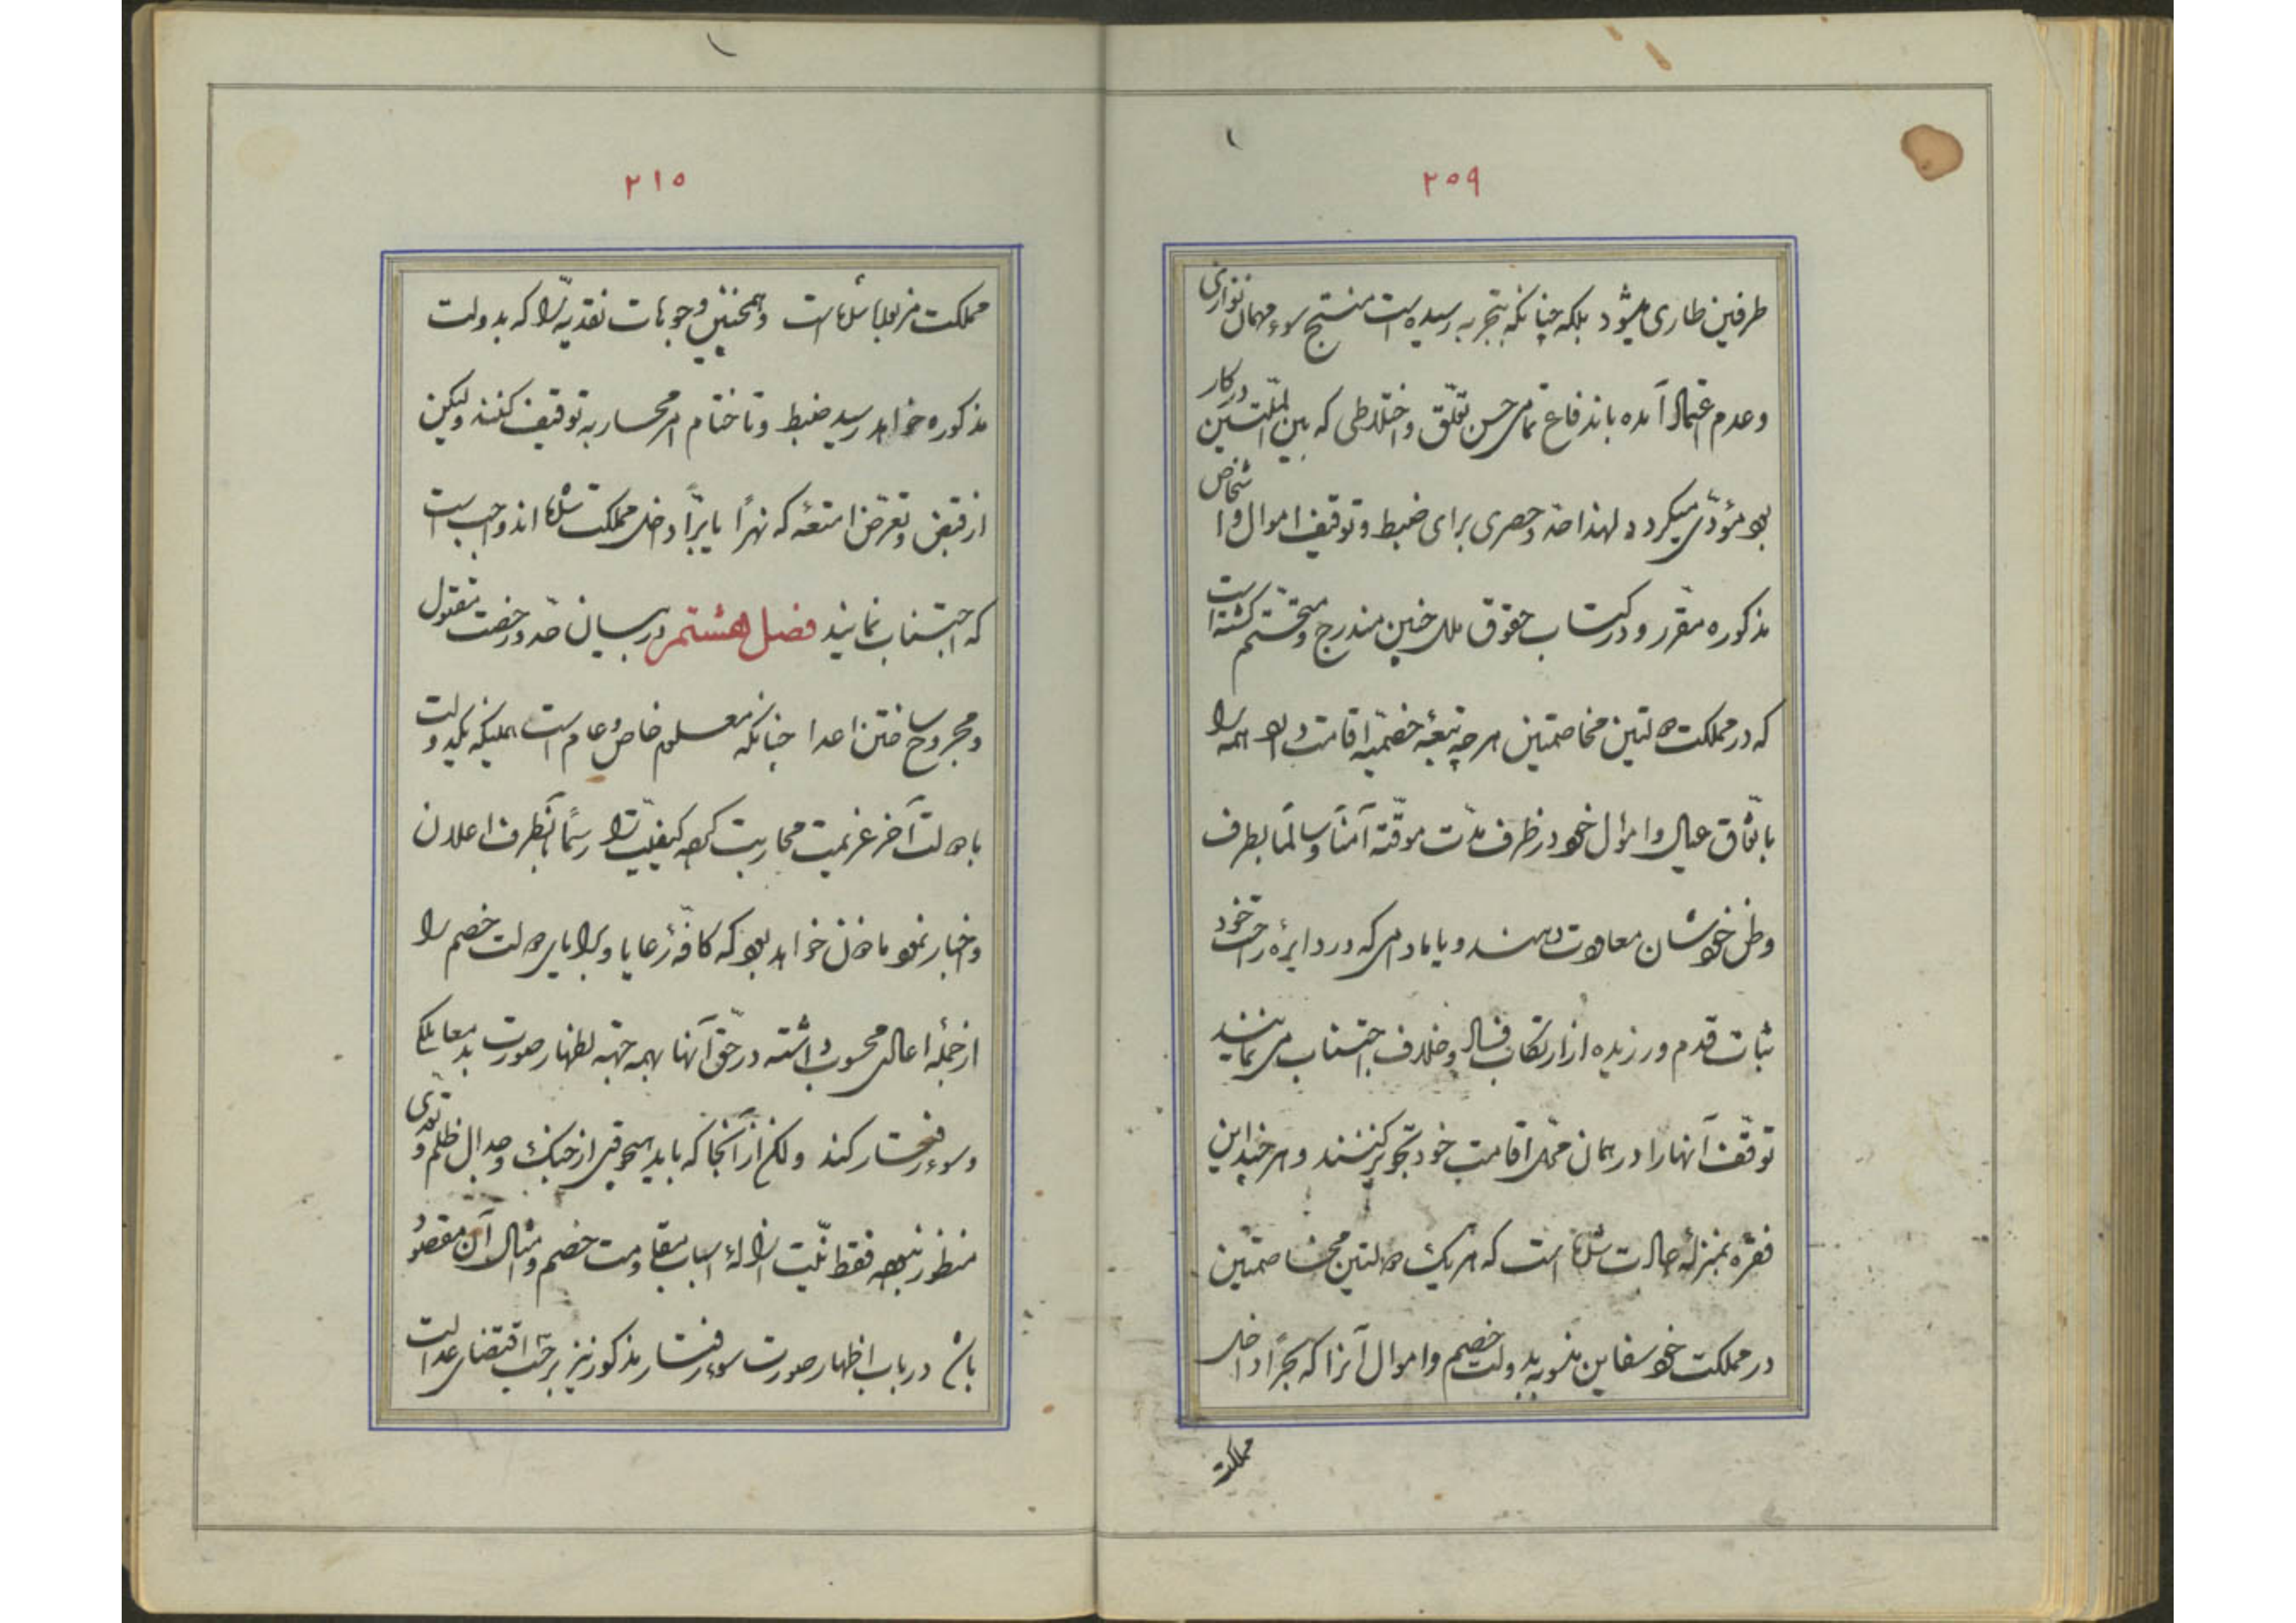 ۲۰۹
طرفین طاری میشود بلکه چنانکه بتجربه رسیده است منتج سوء مهمان نوازی
و عدم اعتماد آمده باندفاع تمامی حسن تعلّق و اختلاطی که بین الملّتین در کار
بود مؤدّی میکردد لهذا حدّ و حصری برای ضبط و توقیف اموال و اشخاص
مذکوره مقرّر و در کتاب حقوق ملل چنین مندرج و متحتّم کشته است
که در مملکت دولتین مخاصمتین هر چه تبعهٔ خصمیّه اقامت دارد همه را
باتّفاق عیال و اموال خود در ظرف مدّت موقّته آمناً و سالماً بطرف
وطن خودشان معاودت دهند و یا مادامی که در دایرهٔ راحت خود
ثبات قدم ورزیده از ارتکاب فساد و خلاف اجتناب می نمایند
توقّف آنها را در همان محّل اقامت خود تجویز کنند و هر چند این
فقره بمنزلهٔ حالات است که هر یک دولتین مخاصمتین
در مملکت خود سفاین منسوبه بدولت خصم و اموال آنرا که بحراً داخل
مملکت
۲۱۰
مملکت مزبوره شده است و همچنین وجوهات نقدیّه را که بدولت
مذکوره خواهد رسید ضبط و تا ختام امر محاربه توقیف کنند ولیکن
از قبض و تعرّض امتعهٔ که نهراً یا برّاً داخل مملکت شده اند واجب است
که اجتناب نمایند فصل هشتم در بیان حدّ و رخصت مقتول
و مجروح ساختن اعدا چنانکه معلوم خاص و عام است همینکه یکدولت
با دولت آخر عزیمت محاربت کرده کیفیّت را رسماً بآنطرف اعلان
و اخبار نمود ماذون خواهد بود که کافّهٔ رعایا و برایای دولت خصم را
از جملهٔ اعادی محسوب داشته در حقّ آنها بهمه جهته اظهار صورت بد معاملکی
و سوء رفتار کند ولکن از آنجا که باید هیچوقتی از جنک و جدال ظلم و تعدّی
منظور نبوده فقط نیّت ازالهٔ اسباب مقاومت خصم و امثال آن مقصود
باشد در باب اظهار صورت سوء رفتار مذکور نیز بر حسب اقتضای عدالت